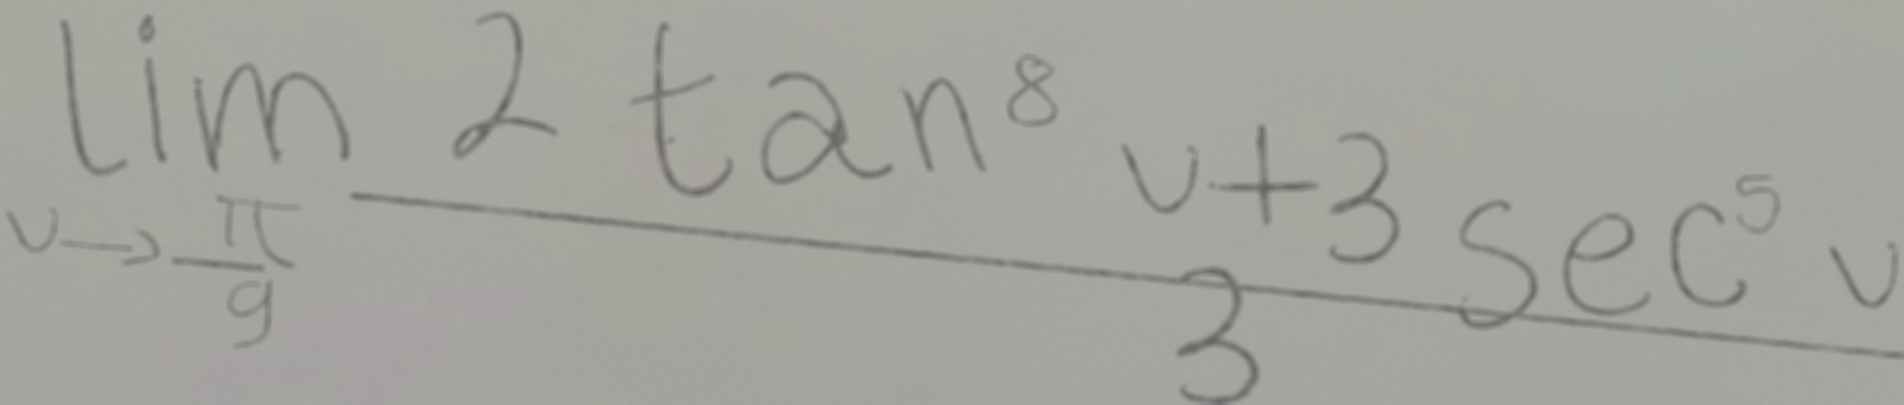 \lim_{v \to \frac{\pi}{9}} \frac{2 \tan^8 v + 3 \sec^5 v}{3}